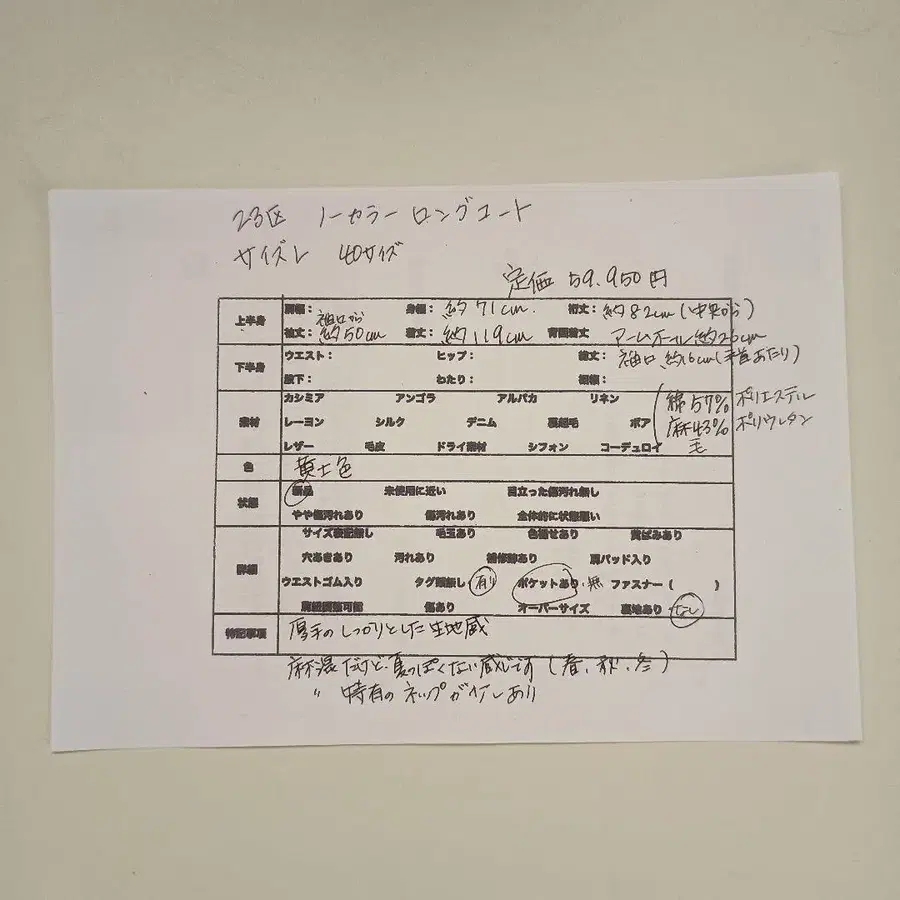 23区 ノーカラー ロングコート
サイズ L 40サイズ
定価 59.950円
上半身 肩幅: 身幅: 約71cm. 裄丈: 約82cm(中央から)
袖丈: 袖口から 約50cm 着丈: 約119cm 背面着丈 アームホール約26cm
下半身 ウエスト: ヒップ: 総丈: 袖口 約16cm(手首あたり)
股下: わたり: 裾幅:
素材 カシミア アンゴラ アルパカ リネン 綿57% ポリエステル
レーヨン シルク デニム 裏起毛 ボア 麻43% ポリウレタン
レザー 毛皮 ドライ素材 シフォン コーデュロイ 毛
色 黄土色
状態 新品 未使用に近い 目立った傷汚れ無し
やや傷汚れあり 傷汚れあり 全体的に状態悪い
詳細 サイズ表記無し 毛玉あり 色褪せあり 黄ばみあり
穴あきあり 汚れあり 補修跡あり 肩パッド入り
ウエストゴム入り タグ類無し 有り ポケットあり・無 ファスナー( )
肩紐調整可能 傷あり オーバーサイズ 裏地あり なし
特記事項 厚手のしっかりとした生地感
麻混だけど、夏っぽくない感じです(春、秋、冬)
〃 特有のネップが少しあり